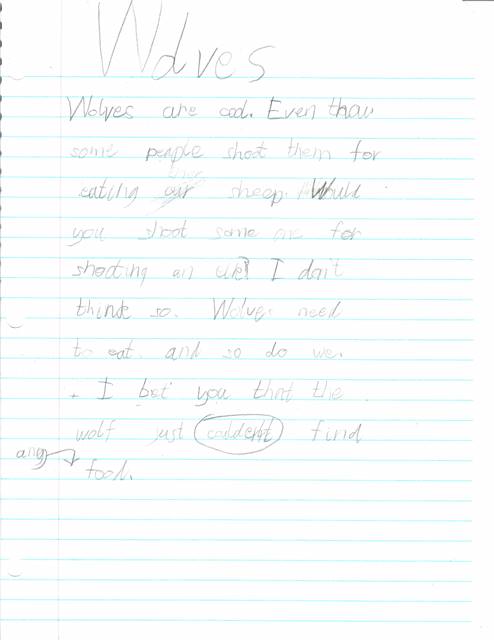 Wolves
Wolves are cool. Even thou
some people shoot them for
eating sheep. Would
you shoot some one for
shooting an elk? I don't
think so. Wolves need
to eat. and so do we.
I bet you that the
wolf just couldent find
any
food.